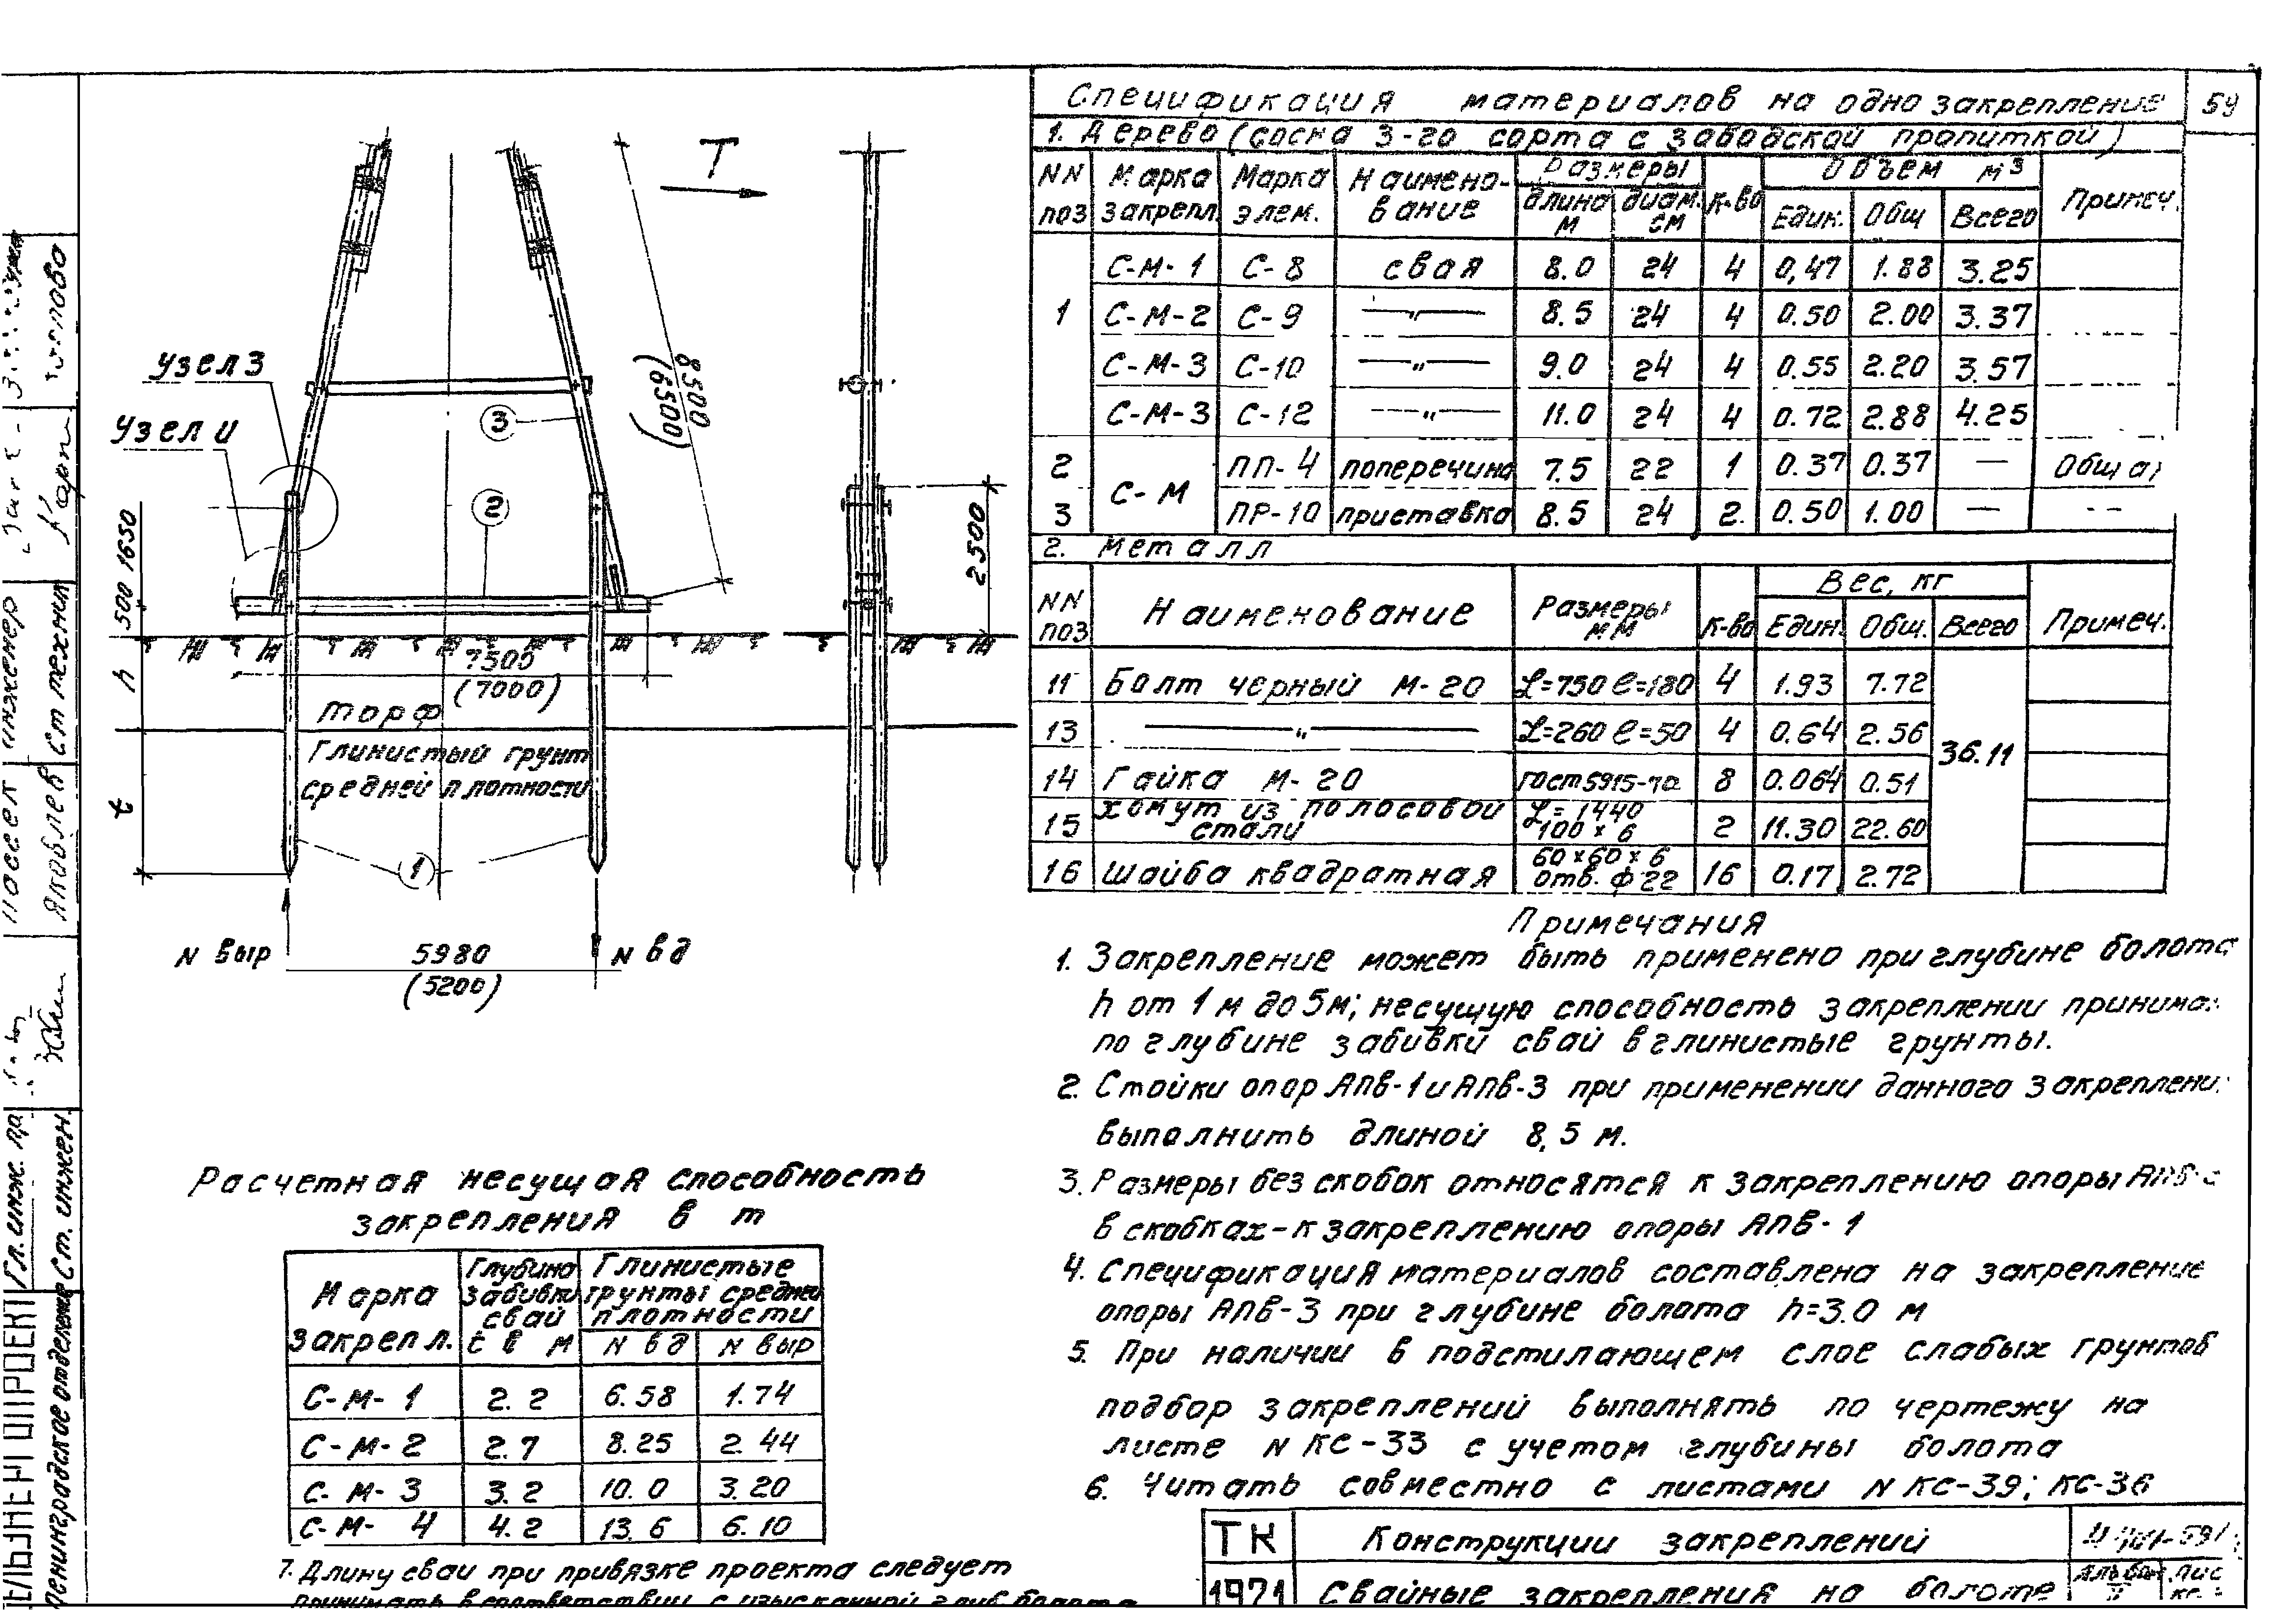 Спецификация материалов на одно закрепление 54
1. Дерево (сосна 3-го сорта с заводской пропиткой)
NN поз Марка закрепл Марка элем. Наимено-вание Размеры длина м диам. см К-во Объем м³ Един. Общ Всего Примеч.
1 С-М-1 С-8 свая 8.0 24 4 0,47 1.88 3.25
С-М-2 С-9 —"— 8.5 24 4 0.50 2.00 3.37
С-М-3 С-10 —"— 9.0 24 4 0.55 2.20 3.57
С-М-3 С-12 —"— 11.0 24 4 0.72 2.88 4.25
2 С-М ПП-4 поперечина 7.5 22 1 0.37 0.37 —
3 ПР-10 приставка 8.5 24 2. 0.50 1.00 —
2. Металл
NN поз Наименование Размеры мм К-во Вес, кг Един. Общ. Всего Примеч.
11 Болт черный М-20 L=750 l=180 4 1.93 7.72 36.11
13 —"— L=260 l=50 4 0.64 2.56
14 Гайка М-20 гост 5915-70 8 0.064 0.51
15 Хомут из полосовой стали L=1440 100×6 2 11.30 22.60
16 Шайба квадратная 60×60×6 отв. ф 22 16 0.17 2.72
Т
Узел 3
Узел 4
8500
(6500)
3
2
1650
500
h
t
2500
7500
(7000)
Торф
Глинистый грунт
средней плотности
1
N выр
5980
(5200)
N вд
Примечания
1. Закрепление может быть применено при глубине болота
h от 1 м до 5м; несущую способность закреплении
по глубине забивки свай в глинистые грунты.
2. Стойки опор АПВ-1 и АПВ-3 при применении данного
выполнить длиной 8,5 м.
3. Размеры без скобок относятся к закреплению опоры
в скобках-к закреплению опоры АПВ-1
4. Спецификация материалов составлена на закрепление
опоры АПВ-3 при глубине болота h=3.0 м
5. При наличии в подстилающем слое слабых грунтов
подбор закреплений выполнять по чертежу на
листе N КС-33 с учетом глубины болота
6. Читать совместно с листами N КС-39; КС-36
Расчетная несущая способность
закрепления в т
Марка закрепл. Глубина забивки свай t в м Глинистые грунты средней плотности N вд N выр
С-М-1 2.2 6.58 1.74
С-М-2 2.7 8.25 2.44
С-М-3 3.2 10.0 3.20
С-М-4 4.2 13.6 6.10
7. Длину сваи при привязке проекта следует
принимать в соответствии с изысканной глуб. болота
ТК Конструкции закреплений
1971 Свайные закрепления на болоте
Ленинградское отделение
Гл. инж. пр.
Ст. инжен.
Яковлев
инженер
Ст техник